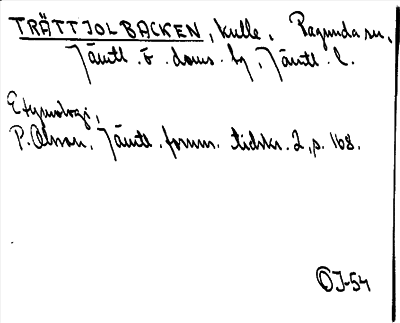 TRÄTTJOLBACKEN, kulle, Ragunda sn,
Jämtl. ö. doms. fg, Jämtl. l.
Etymologi,
P. Olsson, Jämtl. fornm. tidskr. 2, s. 168.
OJ-54